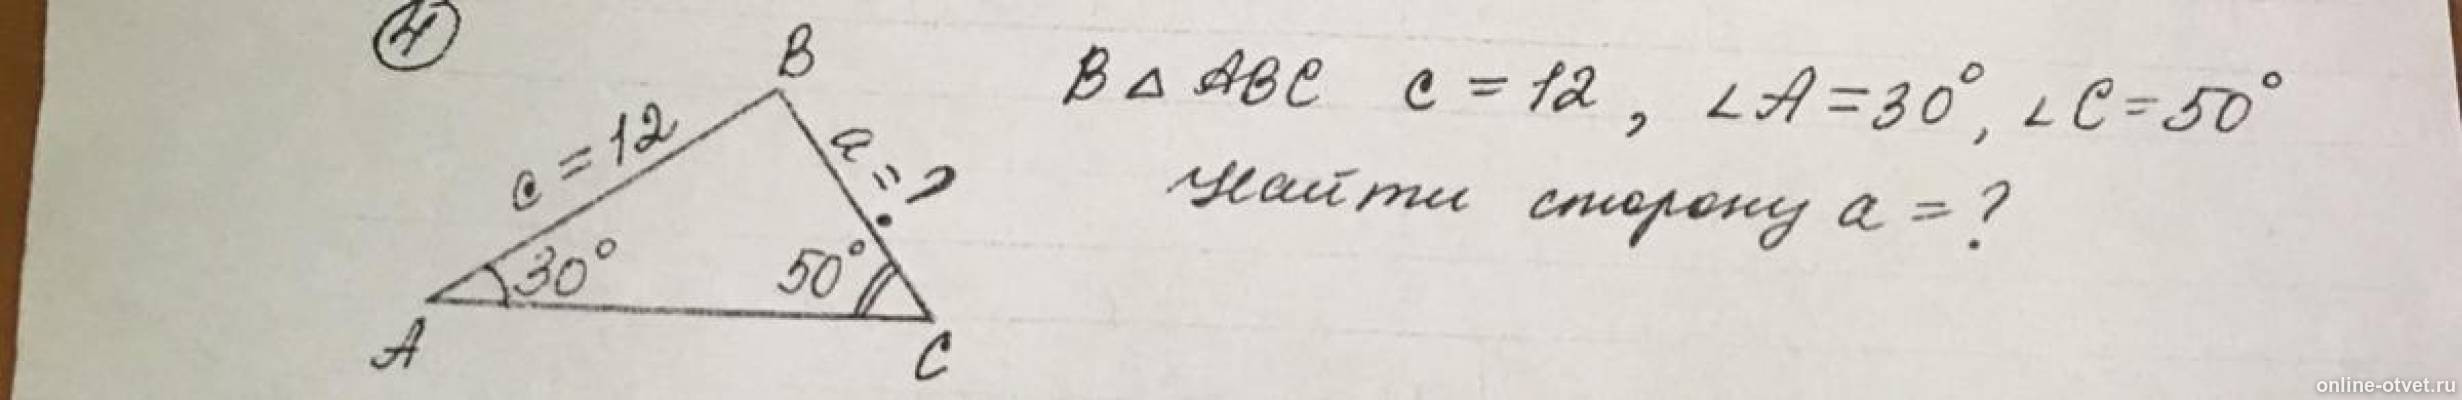 4
B
c = 12
a = ?
30°
50°
A
C
В △ ABC c = 12, ∠A = 30°, ∠C = 50°
Найти сторону a = ?
online-otvet.ru